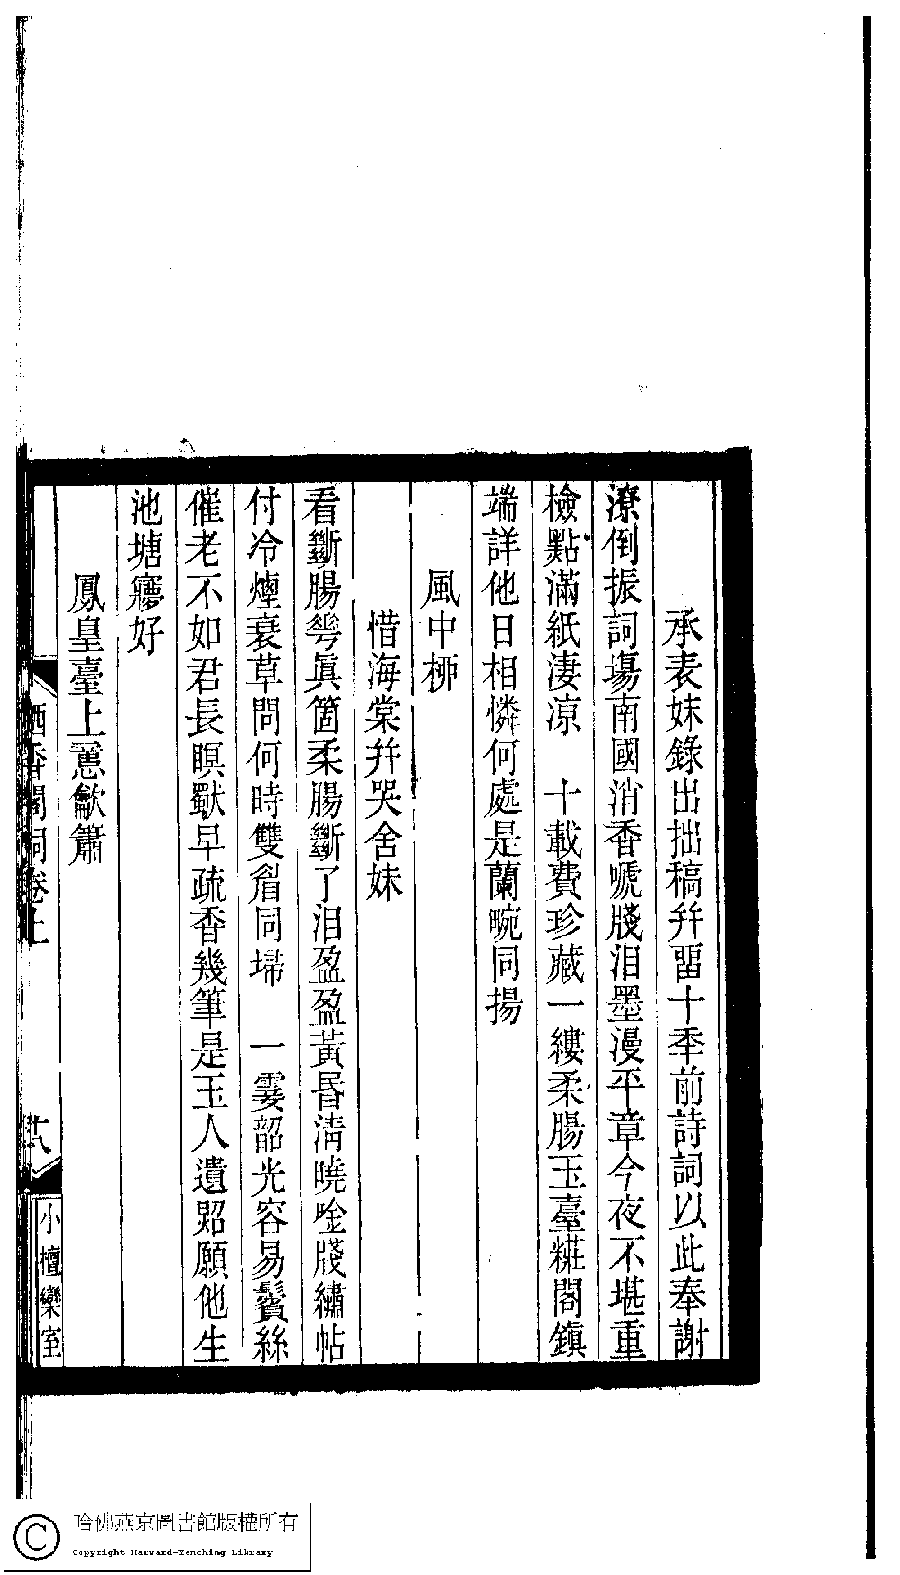 承表妹錄出拙稿幷畱十季前詩詞以此奉謝
潦倒振詞塲南國消香唬牋泪墨漫平章今夜不堪重
檢點滿紙淒凉　十載費珍藏一縷柔腸玉臺糚閣鎭
端詳他日相憐何處是蘭畹同揚
風中柳
惜海棠幷哭舍妹
看斷腸㠔眞箇柔腸斷了泪盈盈黃昬淸曉唫牋繡帖
付冷煙衰草問何時雙眉同埽　一霎韶光容易鬢絲
催老不如君長瞑獃早疏香幾筆是玉人遺照願他生
池塘㝱好
鳳皇臺上憶龡簫
栖香閣詞卷上
十八
小檀欒室
哈佛燕京圖書館版權所有
Copyright Harvard-Yenching Library